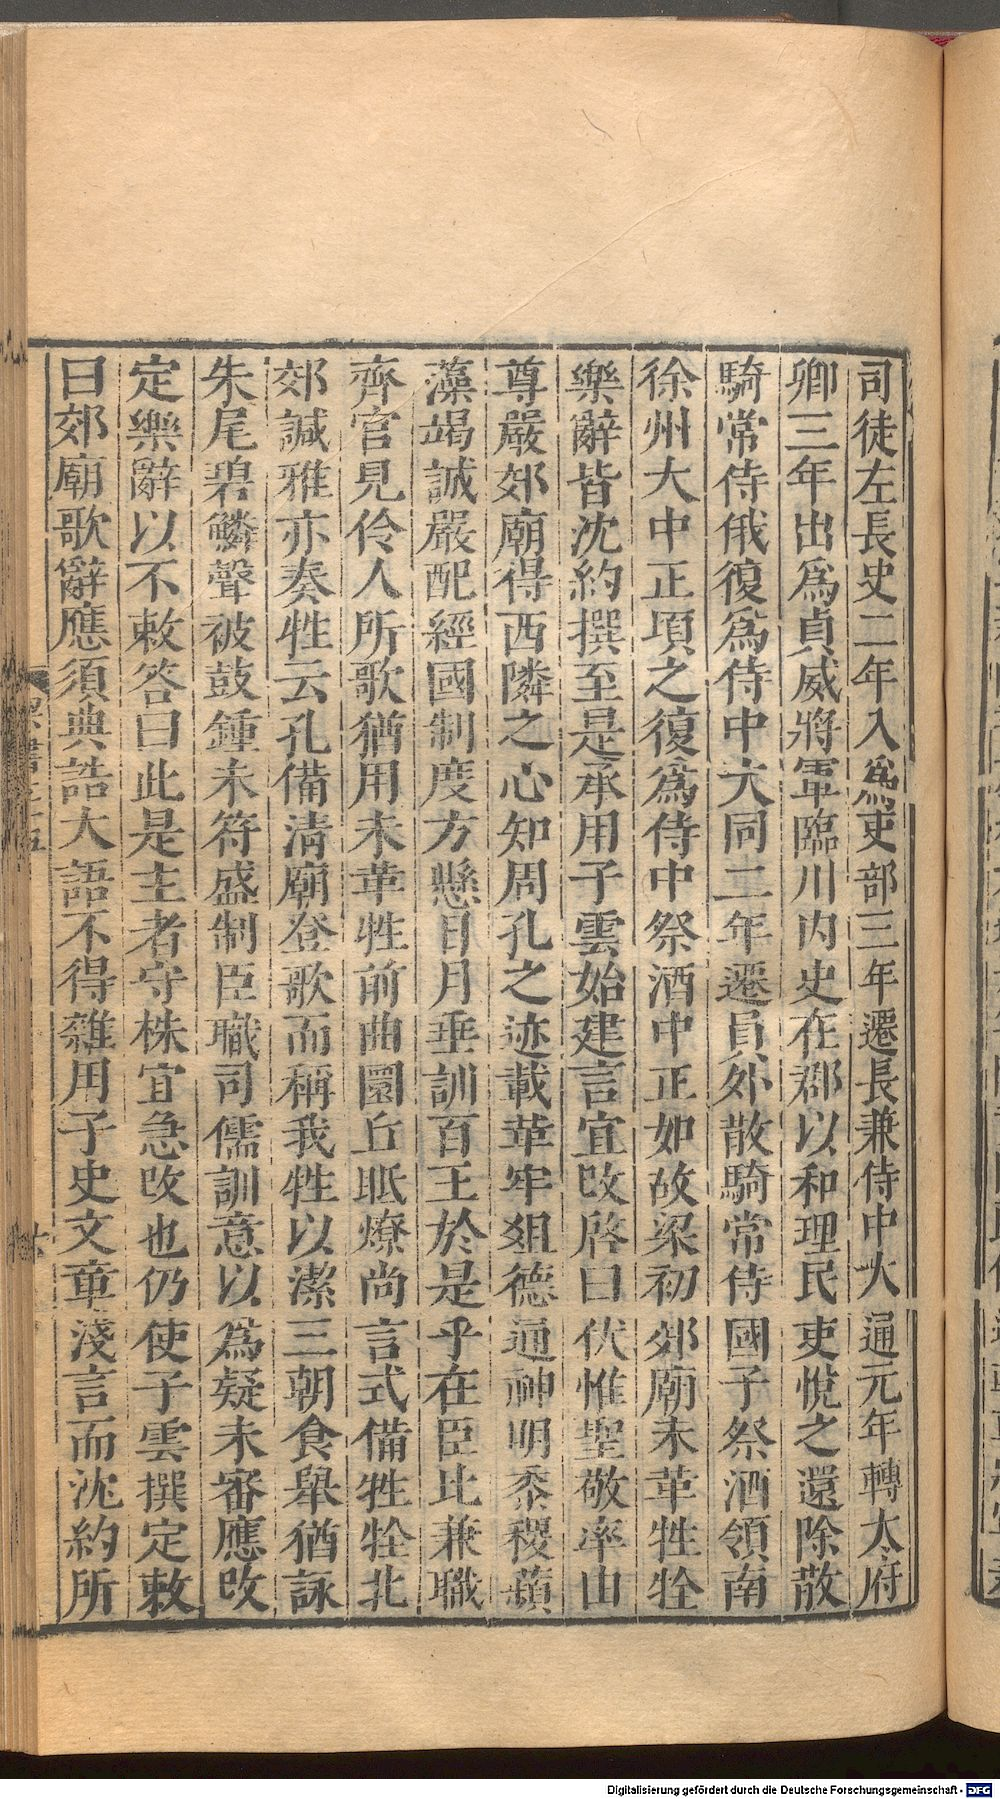 司徒左長史二年入爲吏部三年遷長兼侍中大通元年轉太府
卿三年出爲貞威將軍臨川内史在郡以和理民吏悅之還除散
騎常侍俄復爲侍中大同二年遷員外散騎常侍國子祭酒領南
徐州大中正項之復爲侍中祭酒中正如故梁初郊廟未革牲牷
樂辭皆沈約撰至是承用子雲始建言宜改啓曰伏惟聖敬率由
尊嚴郊廟得西隣之心知周孔之迹載革牢爼德通神明黍稷蘋
藻竭誠嚴配經國制度方懸日月垂訓百王於是乎在臣比兼職
齊官見伶人所歌猶用未革牲前曲圜丘眂燎尚言式備牲牷北
郊諴雅亦奏牲云孔備清廟登歌而稱我牲以潔三朝食舉猶詠
朱尾碧鱗聲被鼓鍾未符盛制臣職司儒訓意以爲疑未審應改
定樂辭以不敕答曰此是主者守株宜急改也仍使子雲撰定敕
曰郊廟歌辭應須典誥大語不得雜用子史文章淺言而沈約所
Digitalisierung gefördert durch die Deutsche Forschungsgemeinschaft - DFG